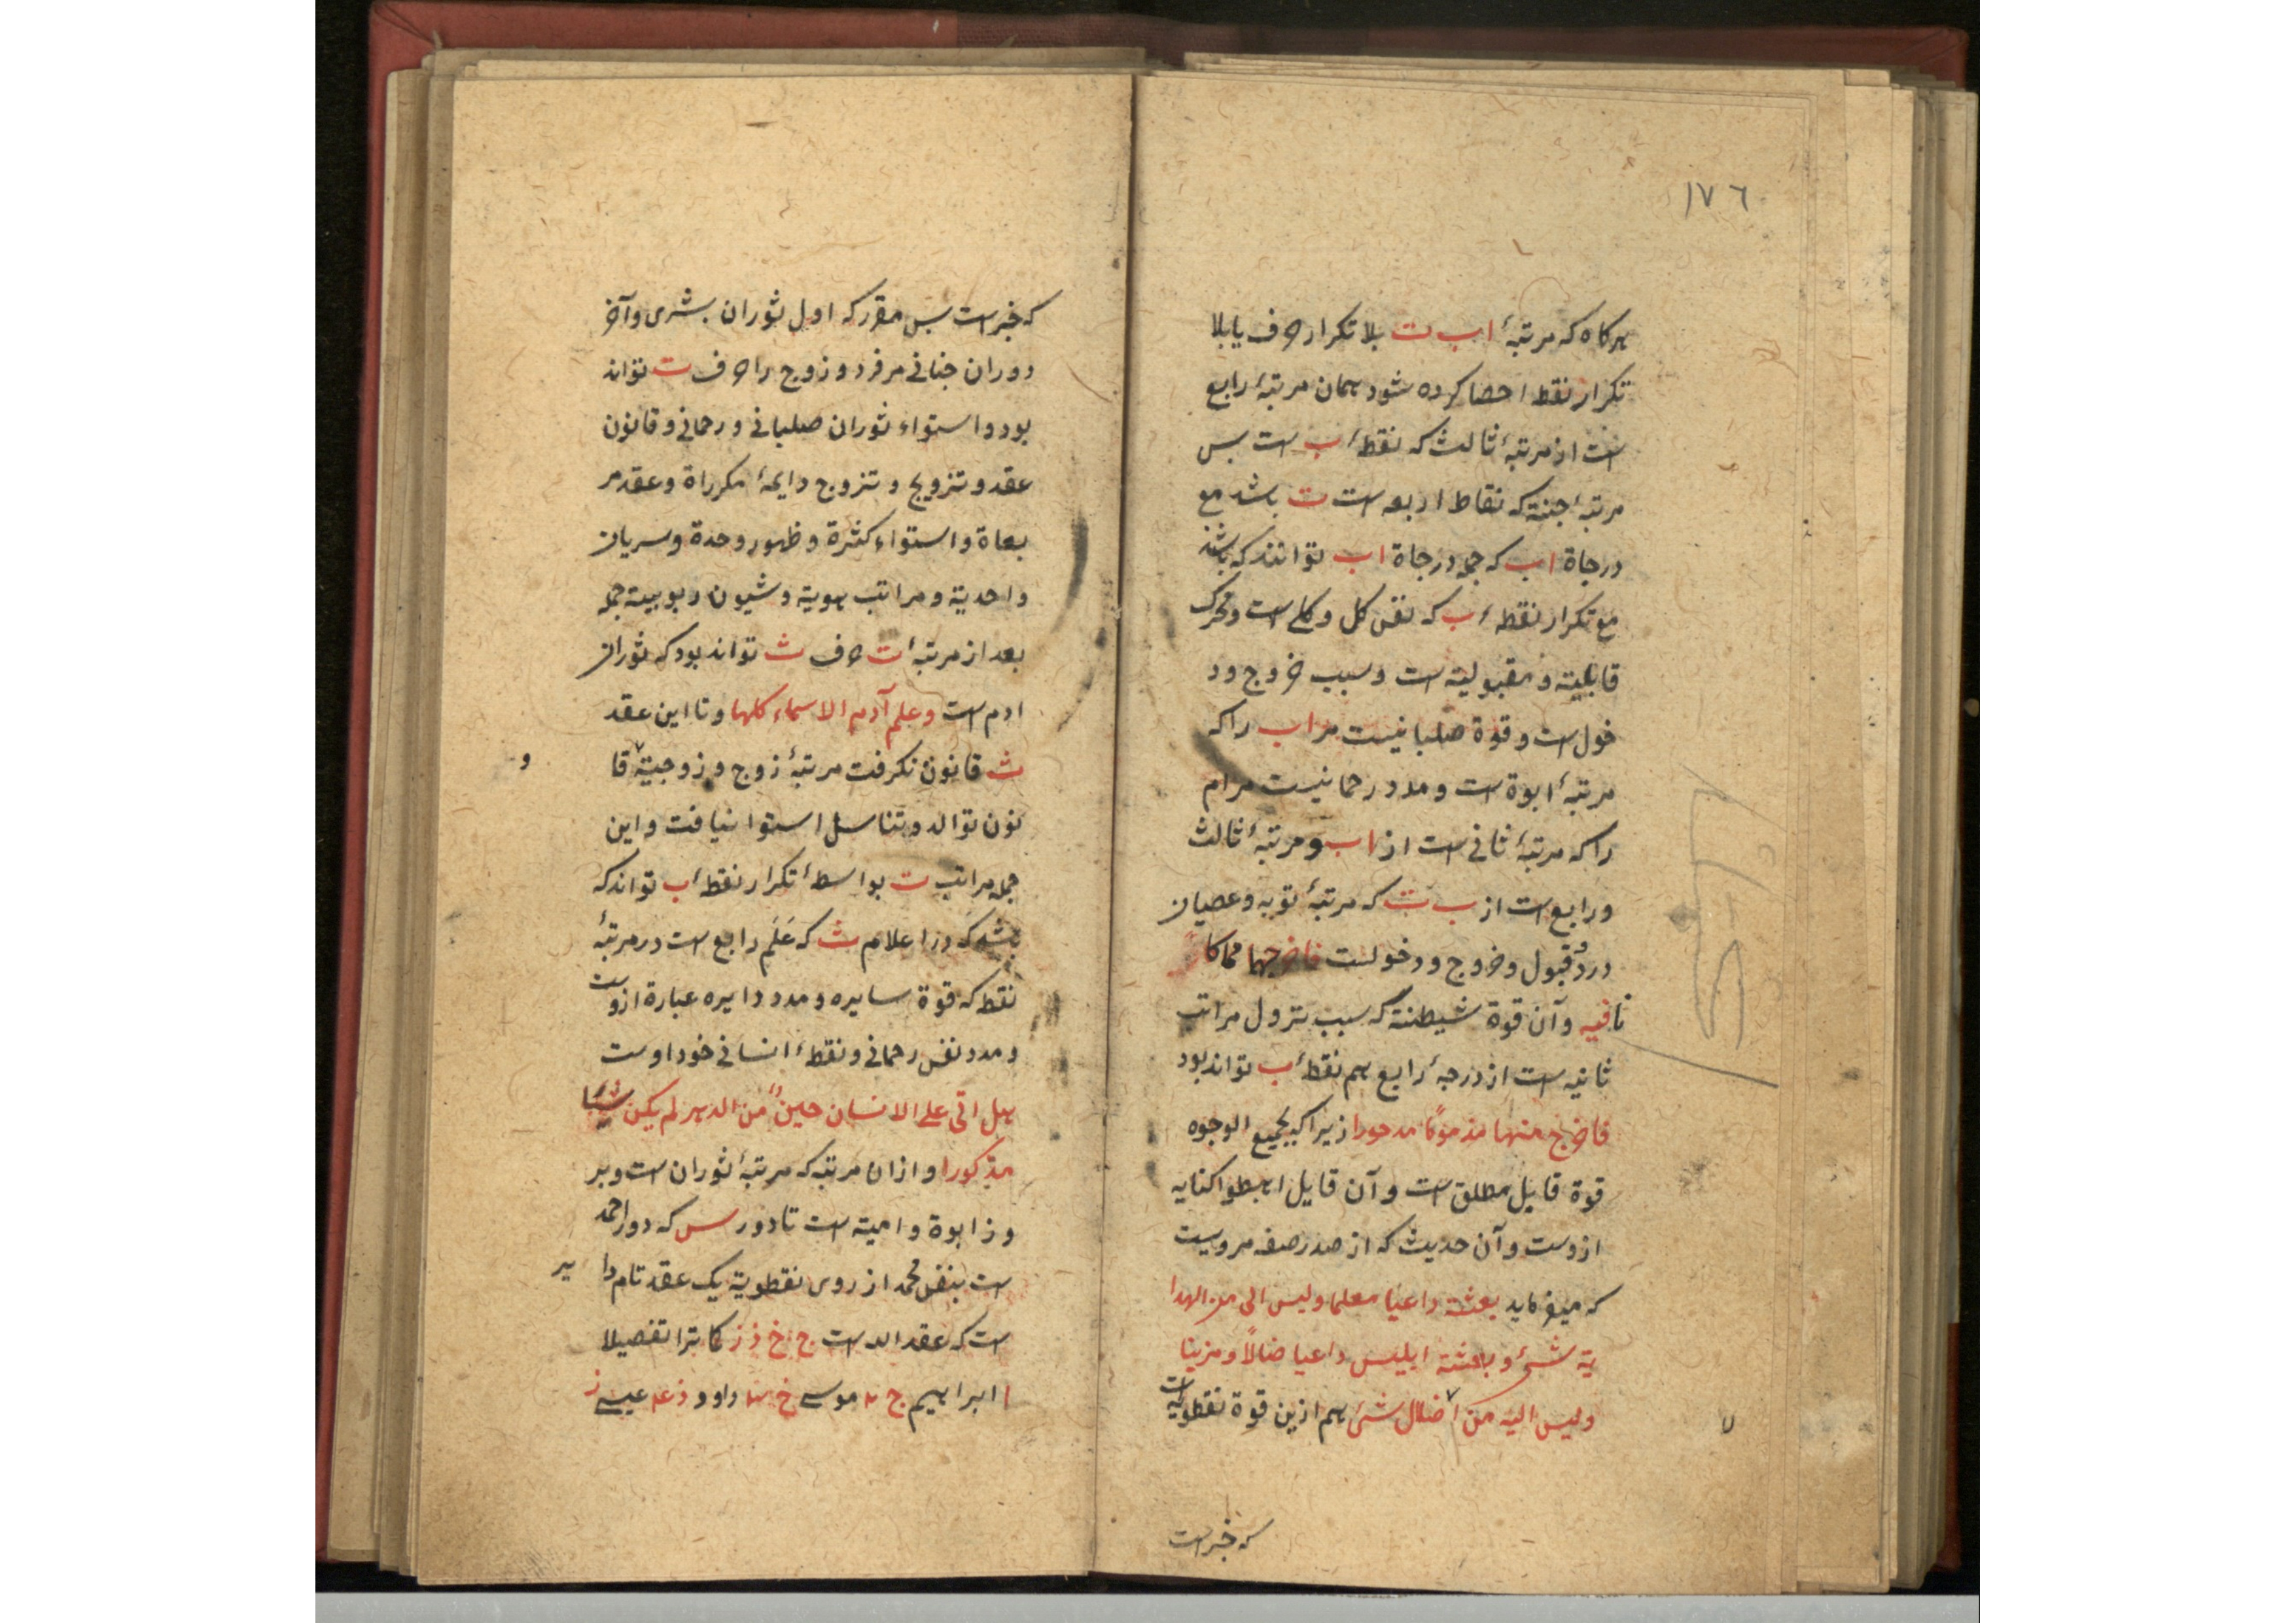 ١٧٦
هرکاه که مرتبهٔ اب ت بلا تکرار حرف یا بلا
تکرار نقط احصا کرده شود همان مرتبهٔ رابع
است از مرتبهٔ ثالث که نقطهٔ ب است بس
مرتبهٔ جنة که نقاط اربعه است ت باشد مع
درجاة اب که جمله درجاة اب توانند که باشند
مع تکرار نقطهٔ ب که نفس کل و کلی است ومحرک
قابلیة و مقبولیة است وسبب خروج ود
خول است و قوة صلبانیست مر اب را که
مرتبهٔ ابوة است و مدد رحمانیست مر ام
را که مرتبهٔ ثانی است از اب و مرتبهٔ ثالث
ورابع است از ب ت که مرتبهٔ توبه وعصیان
ورد و قبول و خروج و دخولست فاخرجهما مما کا
نا فیه و آن قوة شیطنة که سبب نزول مراتب
ثانیه است از درجهٔ رابع هم نقطهٔ ب تواند بود
فاخرج منها مذموما مدحورا زیرا که بجمیع الوجوه
قوة قایل مطلق است و آن قایل اهبطوا کنایه
ازوست و آن حدیث که از صدر صفه مرویست
که میفرماید بعثت داعیا معلما ولیس الی من الهدا
یة شیٔ و بعثت ابلیس داعیا ضالا و مزینا
ولیس الیه من اضلال شیٔ هم ازین قوة نقطویة است
که خبر است
که خبر است بس مقرر که اول ثوران بشری وآخر
دوران جنانی مر فرد و زوج را حرف ت تواند
بود و استواء ثوران صلبانی و رحمانی و قانون
عقد و تزویج و تزوج دایمهٔ مکرراة و عقد مر
بعاة و استواء کثرة و ظهور وحدة و سریان
واحدیة و مراتب هویة و شیون ربوبیة جمله
بعد از مرتبهٔ ت حرف ث تواند بود که ثوران
ادم است وعلم آدم الاسماء کلها و تا این عقد
ث قانون نکرفت مرتبهٔ زوج و زوجیة قا
و
نون توالد و تناسل استوا نیافت و این
جمله مراتب ت بواسطهٔ تکرار نقطهٔ ب تواند که
باشد که در اعلام ث که عَلَم رابع است در مرتبهٔ
نقط که قوة سایره و مدد دایره عبارة ازوست
و مدد نفس رحمانی و نقطهٔ انسانی خود اوست
هل اتی علی الانسان حین من الدهر لم یکن شیئا
مذکورا و از ان مرتبه که مرتبهٔ ثوران است و بر
وز ابوة و امیة است تا دور س که دور احمد
است بنفس محمد از روی نقطویة یک عقد تام دا
یر
است که عقد الد است ج خ ذ ز کما ترا تفصیلا
ا ابراهیم ج موسی خ داود ذ عیسی ز